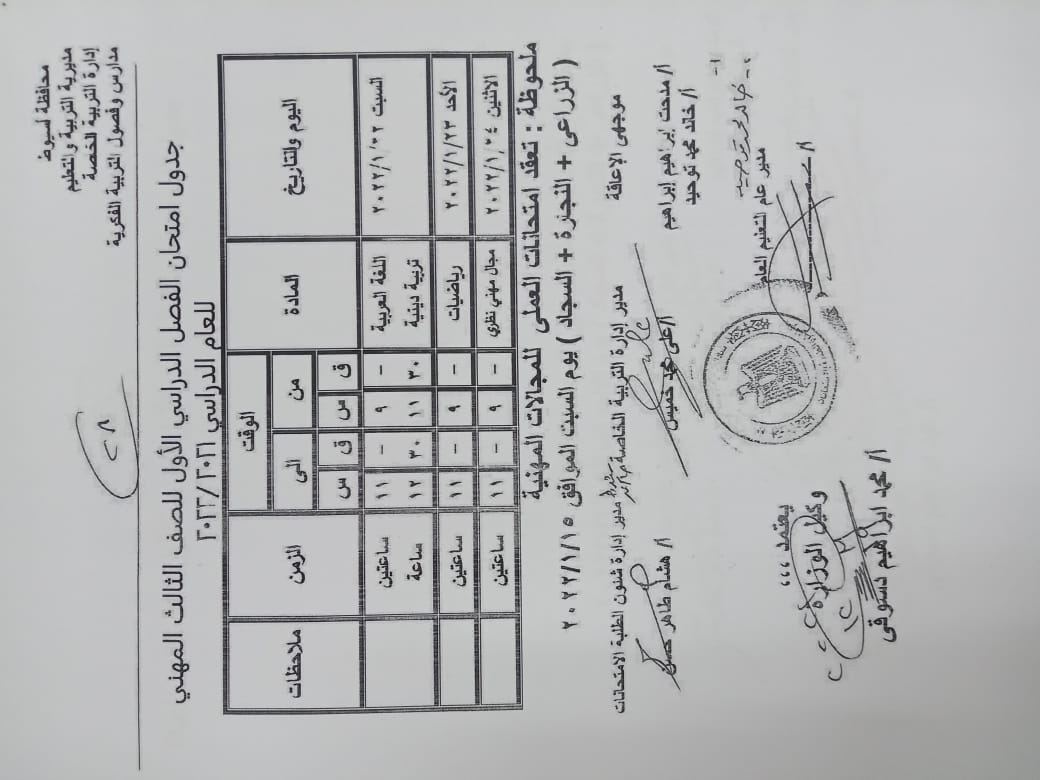 محافظة أسيوط
مديرية التربية والتعليم
إدارة التربية الخاصة
مدارس وفصول التربية الفكرية
٢٨
جدول امتحان الفصل الدراسي الأول للصف الثالث المهني
للعام الدراسي ٢٠٢١/٢٠٢٢
اليوم والتاريخ المادة الوقت الزمن ملاحظات
من الى
ق س ق س
السبت ٢٠٢٢/١/٢٢ اللغة العربية - ٩ - ١١ ساعتين
تربية دينية ٣٠ ١١ ٣٠ ١٢ ساعة
الأحد ٢٠٢٢/١/٢٣ رياضيات - ٩ - ١١ ساعتين
الاثنين ٢٠٢٢/١/٢٤ مجال مهني نظري - ٩ - ١١ ساعتين
ملحوظة : تعقد امتحانات العملى للمجالات المهنية
( الزراعى + النجارة + السجاد ) يوم السبت الموافق ٢٠٢٢/١/١٥
موجهى الاعاقة مدير إدارة التربية الخاصة مدير إدارة شئون الطلبة الامتحانات
أ/ مدحت إبراهيم إبراهيم أ/ على محمد خميس أ/ هشام طاهر حسن
أ/ خالد محمد توحيد
١-
٢-
مدير عام التعليم العام
أ/
يعتمد ،،،
وكيل الوزارة
أ/ محمد ابراهيم دسوقى